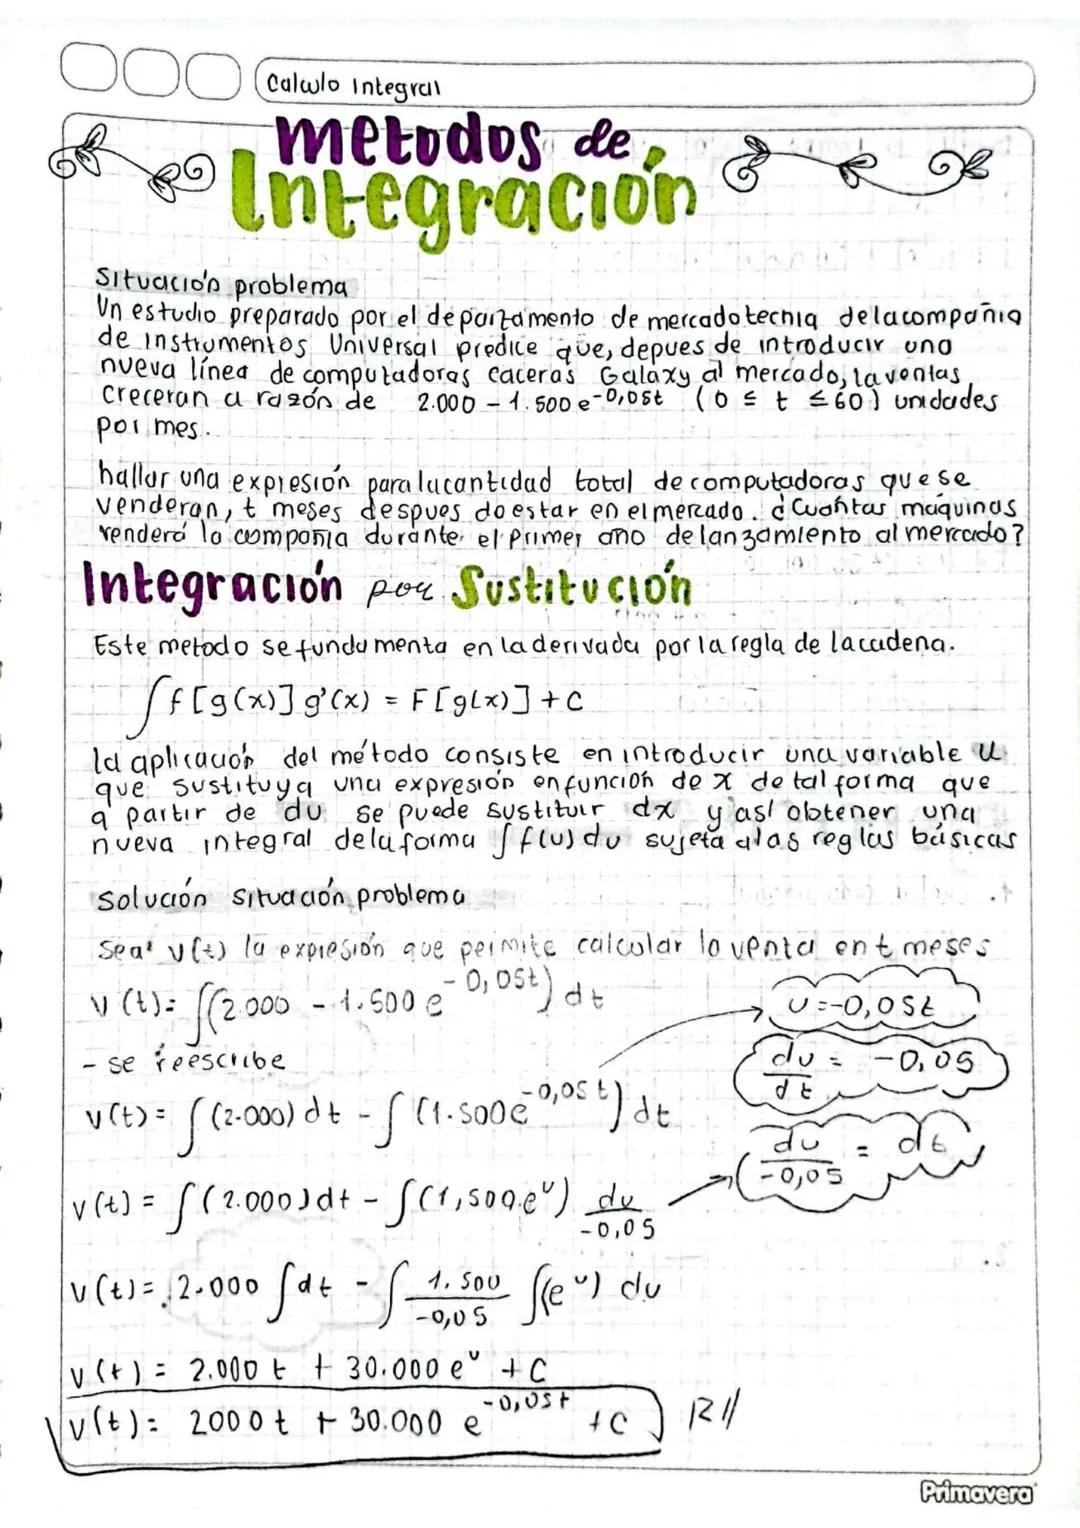 Calculo Integral
metodos de
Integración
Situación problema
Un estudio preparado por el departamento de mercadotecnia de la compañia
de instrumentos Universal predice que, depues de introducir una
nueva línea de computadoras caceras Galaxy al mercado, la ventas
creceran a razón de 2.000 - 1.500 e^-0,05t (0 ≤ t ≤ 60) unidades
por mes.
hallar una expresión para la cantidad total de computadoras que se
venderan, t meses despues do estar en el mercado. ¿Cuántas maquinas
venderá la compañia durante el primer año de lanzamiento al mercado?
Integración por Sustitución
Este metodo se fundamenta en la derivada por la regla de la cadena.
∫ f[g(x)] g'(x) = F[g(x)] + C
la aplicación del método consiste en introducir una variable u
que sustituya una expresión en función de x de tal forma que
a partir de du se puede sustituir dx y así obtener una
nueva integral de la forma ∫f(u)du sujeta a las reglas básicas
Solución situación problema
Sea v(t) la expresión que permite calcular la venta en t meses
v(t)= ∫(2.000 - 1.500 e^-0,05t) dt
u=-0,05t
- se reescribe
du/dt = -0,05
v(t)= ∫(2.000) dt - ∫(1.500e^-0,05t) dt
du/-0,05 = dt
v(t) = ∫(2.000)dt - ∫(1,500.e^u) du/-0,05
v(t)= 2.000 ∫dt - ∫ 1.500/-0,05 ∫(e^u) du
v(t) = 2.000 t + 30.000 e^u + C
v(t)= 2000 t + 30.000 e^-0,05t + C R//
Primavera